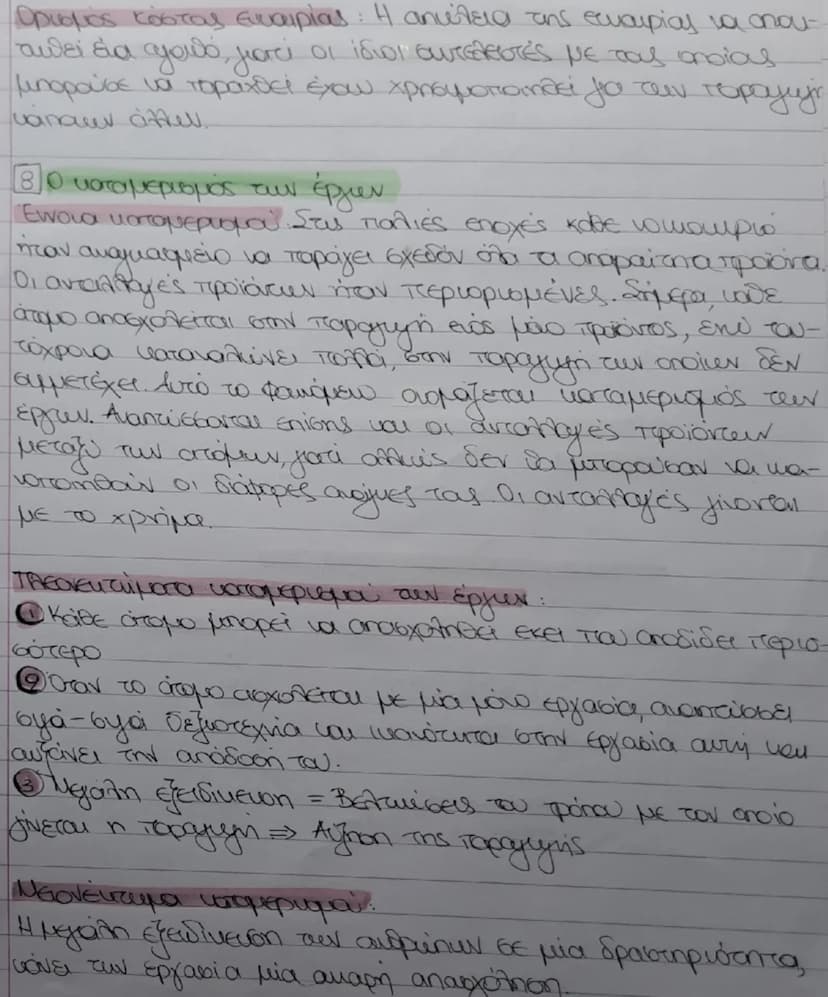 Ορισμός κόστος ευκαιρίας: Η απώλεια της ευκαιρίας να αποκ-
τηθεί ένα αγαθό, γιατί οι ίδιοι συντελεστές με τους οποίους
μπορούσε να παραχθεί έχουν χρησιμοποιηθεί για την παραγωγή
κάποιων άλλων.
8 Ο καταμερισμός των έργων
Έννοια καταμερισμού: Στις παλιές εποχές κάθε νοικοκυριό
ήταν αναγκασμένο να παράγει σχεδόν όλα τα απαραίτητα προϊόντα.
Οι ανταλλαγές προϊόντων ήταν περιορισμένες. Σήμερα, κάθε
άτομο απασχολείται στην παραγωγή ενός μόνο προϊόντος, ενώ ταυ-
τόχρονα καταναλώνει πολλά, στην παραγωγή των οποίων δεν
συμμετέχει. Αυτό το φαινόμενο ονομάζεται καταμερισμός των
έργων. Αναπτύσσονται επίσης και οι ανταλλαγές προϊόντων
μεταξύ των ατόμων, γιατί αλλιώς δεν θα μπορούσαν να ικα-
νοποιηθούν οι διάφορες ανάγκες τους. Οι ανταλλαγές γίνονται
με το χρήμα.
Πλεονεκτήματα καταμερισμού των έργων:
① Κάθε άτομο μπορεί να απασχοληθεί εκεί που αποδίδει περισ-
σότερο
② Όταν το άτομο ασχολείται με μία μόνο εργασία, αναπτύσσει
σιγά-σιγά δεξιοτεχνία και ικανότητα στην εργασία αυτή και
αυξάνει την απόδοσή του.
③ Μεγάλη εξειδίκευση = Βελτιώσεις του τρόπου με τον οποίο
γίνεται η παραγωγή ⇒ Αύξηση της παραγωγής
Μειονέκτημα καταμερισμού:
Η μεγάλη εξειδίκευση των ανθρώπων σε μία δραστηριότητα,
κάνει την εργασία μία ανιαρή απασχόληση.